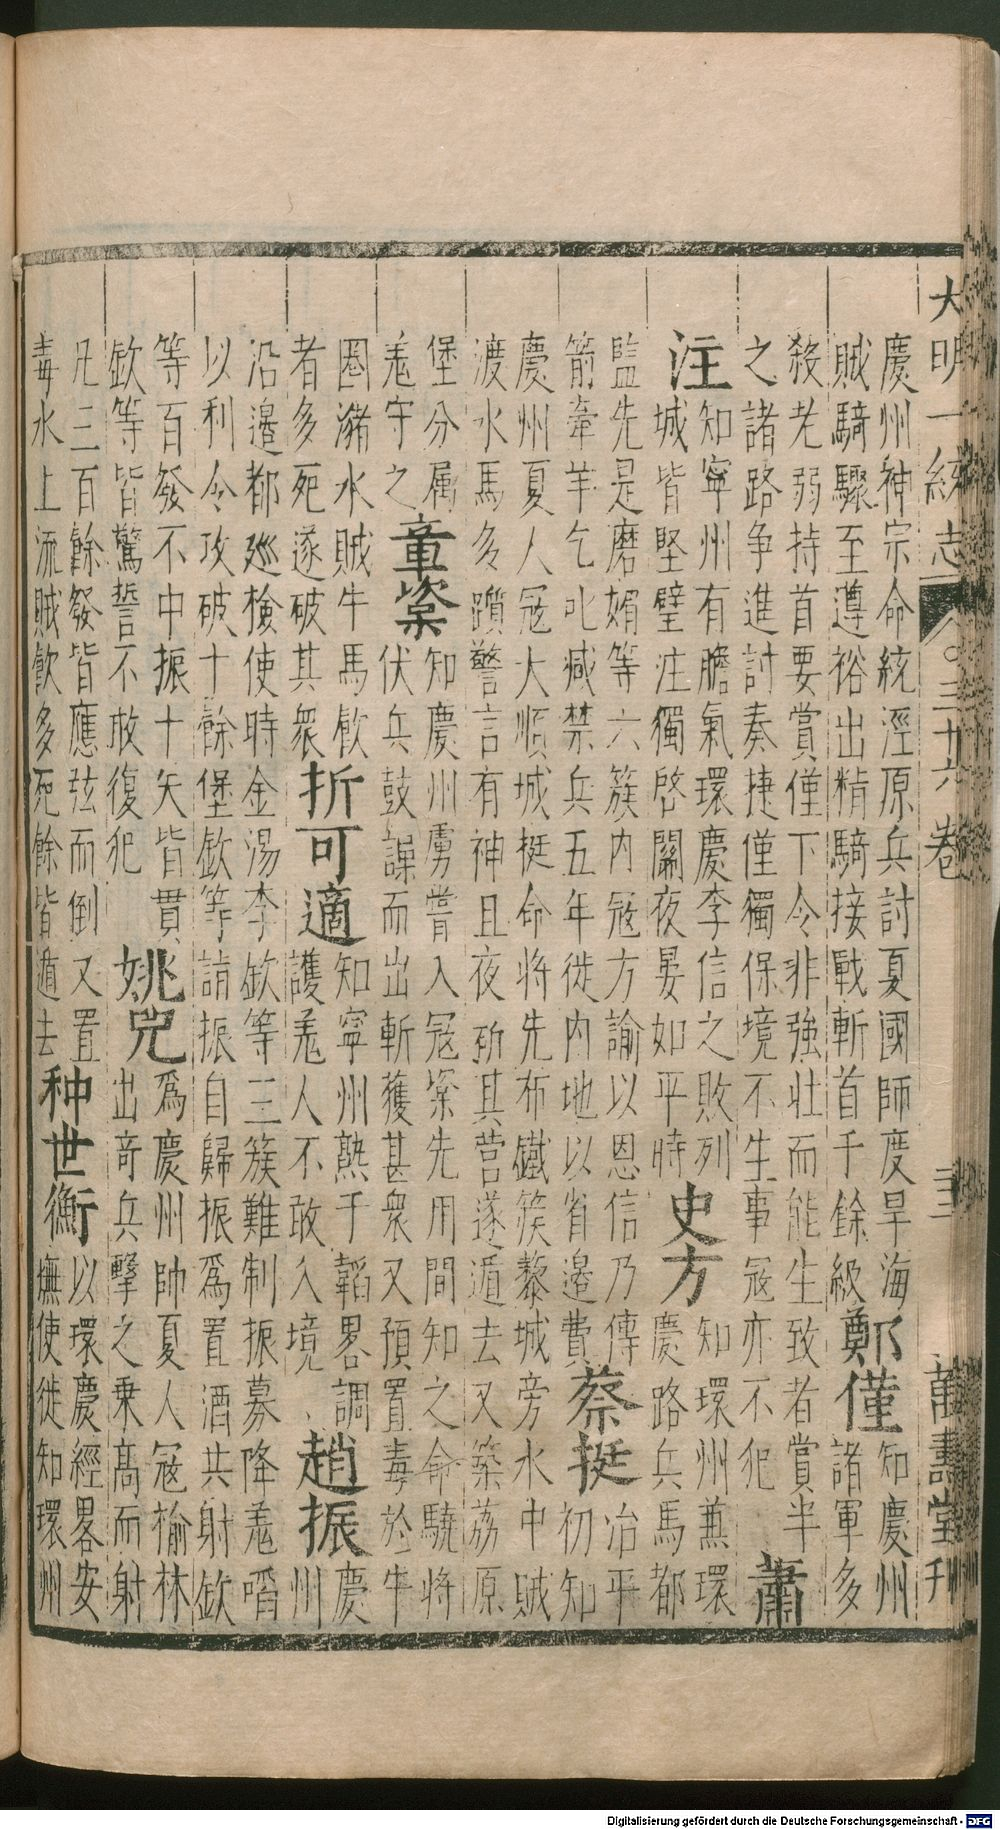 大明一統志 三十六卷 萬壽堂刊
慶州神宗命統涇原兵討夏國師度旱海
賊騎驟至遵裕出精騎接戰斬首千餘級
鄭僅
知慶州
諸軍多
殺老弱持首要賞僅下令非強壯而能生致者賞半
之諸路争進討奏捷僅獨保境不生事冦亦不犯
蕭
注
知寧州有膽氣環慶李信之敗列
城皆堅壁注獨啓關夜宴如平時
史方
知環州兼環
慶路兵馬都
監先是磨媚等六簇内冦方諭以恩信乃傳
箭牽羊乞叱减禁兵五年徙内地以省邊費
蔡挺
治平
初知
慶州夏人冦大順城挺命将先布鐵蒺藜城旁水中賊
渡水馬多躓驚言有神且夜斫其营遂遁去又築荔原
堡分属
羗守之
章楶
知慶州虜嘗入冦楶先用間知之命驍将
伏兵鼓譟而出斬獲甚衆又預置毒於牛
圈瀦水賊牛馬飲
者多死遂破其衆
折可適
知寧州熟于韜畧調
護羗人不敢入境
趙振
慶
州
沿邊都廵檢使時金湯李欽等三簇難制振募降羗㗖
以利令攻破十餘堡欽等詣振自歸振爲置酒共射欽
等百發不中振十矢皆貫
欽等皆驚誓不敢復犯
姚兕
爲慶州帥夏人冦榆林
出竒兵擊之乗髙而射
凡三百餘發皆應弦而倒又置
毒水上流賊飲多死餘皆遁去
种世衡
以環慶經畧安
撫使徙知環州
Digitalisierung gefördert durch die Deutsche Forschungsgemeinschaft - DFG